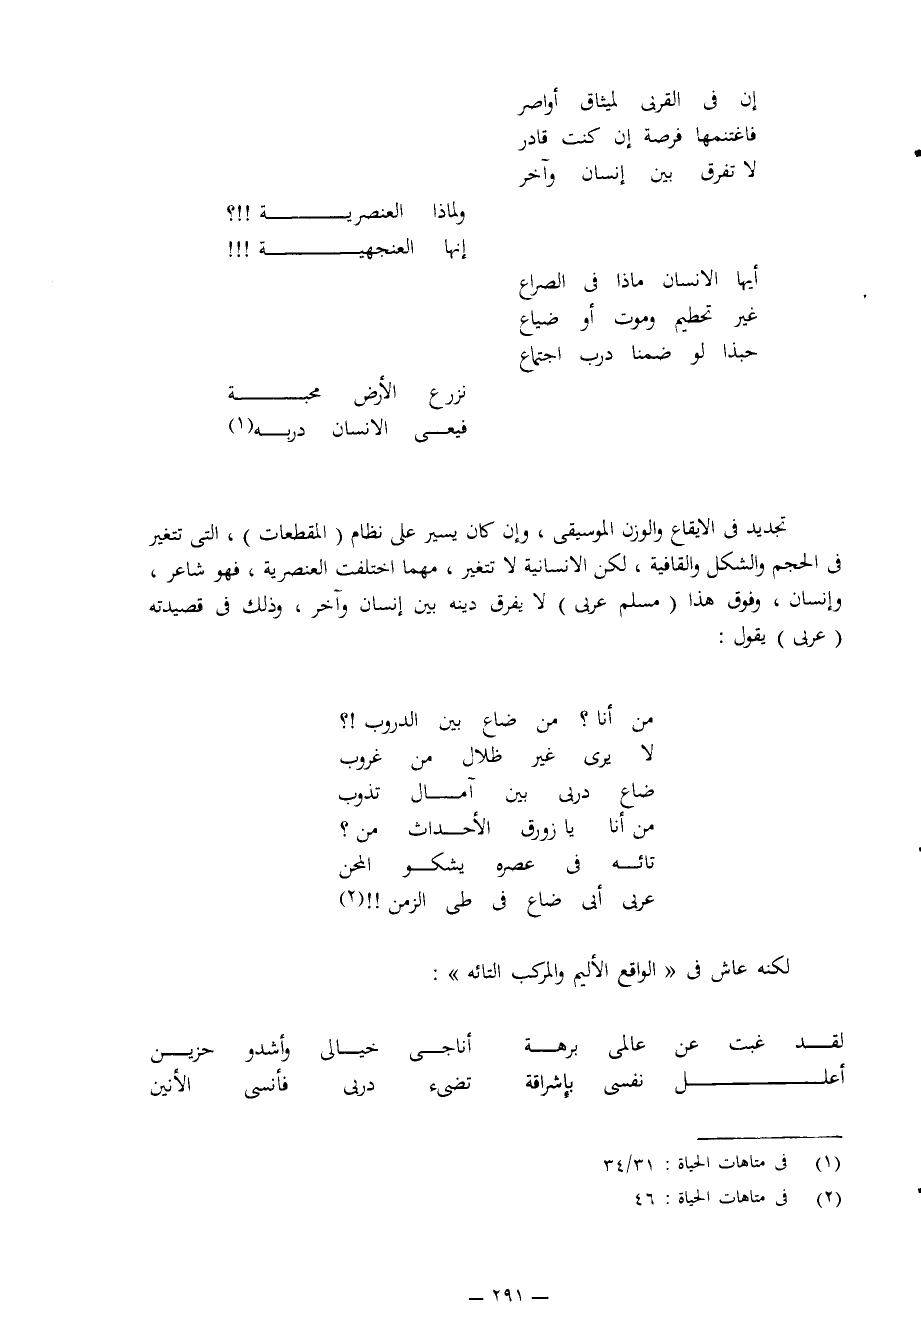 إن فى القربى لميثاق أواصر
فاغتنمها فرصة إن كنت قادر
لا تفرق بين إنسان وآخر
ولماذا العنصريـــــــــة !!؟
إنها العنجهيـــــــــة !!!
أيها الانسان ماذا فى الصراع
غير تحطيم وموت أو ضياع
حبذا لو ضمنا درب اجتماع
نزرع الأرض محبــــــــة
فيعـــى الانسان دربــــه(١)
تجديد فى الايقاع والوزن الموسيقى ، وإن كان يسير على نظام ( المقطعات ) ، التى تتغير
فى الحجم والشكل والقافية ، لكن الانسانية لا تتغير ، مهما اختلفت العنصرية ، فهو شاعر ،
وإنسان ، وفوق هذا ( مسلم عربى ) لا يفرق دينه بين إنسان وآخر ، وذلك فى قصيدته
( عربى ) يقول :
من أنا ؟ من ضاع بين الدروب !؟
لا يرى غير ظلال من غروب
ضاع دربى بين آمـــال تذوب
من أنا يا زورق الأحـــداث من ؟
تائــــه فى عصره يشكـــو المحن
عربى أبى ضاع فى طى الزمن !!(٢)
لكنه عاش فى « الواقع الأليم والمركب التائه » :
لقـــد غبت عن عالمى برهـــة أناجـــى خيـــالى وأشدو حزيـــن
أعلـــــــــــل نفسى بإشراقة تضىء دربى فأنسى الأنين
(١) فى متاهات الحياة : ٣٤/٣١
(٢) فى متاهات الحياة : ٤٦
— ٢٩١ —